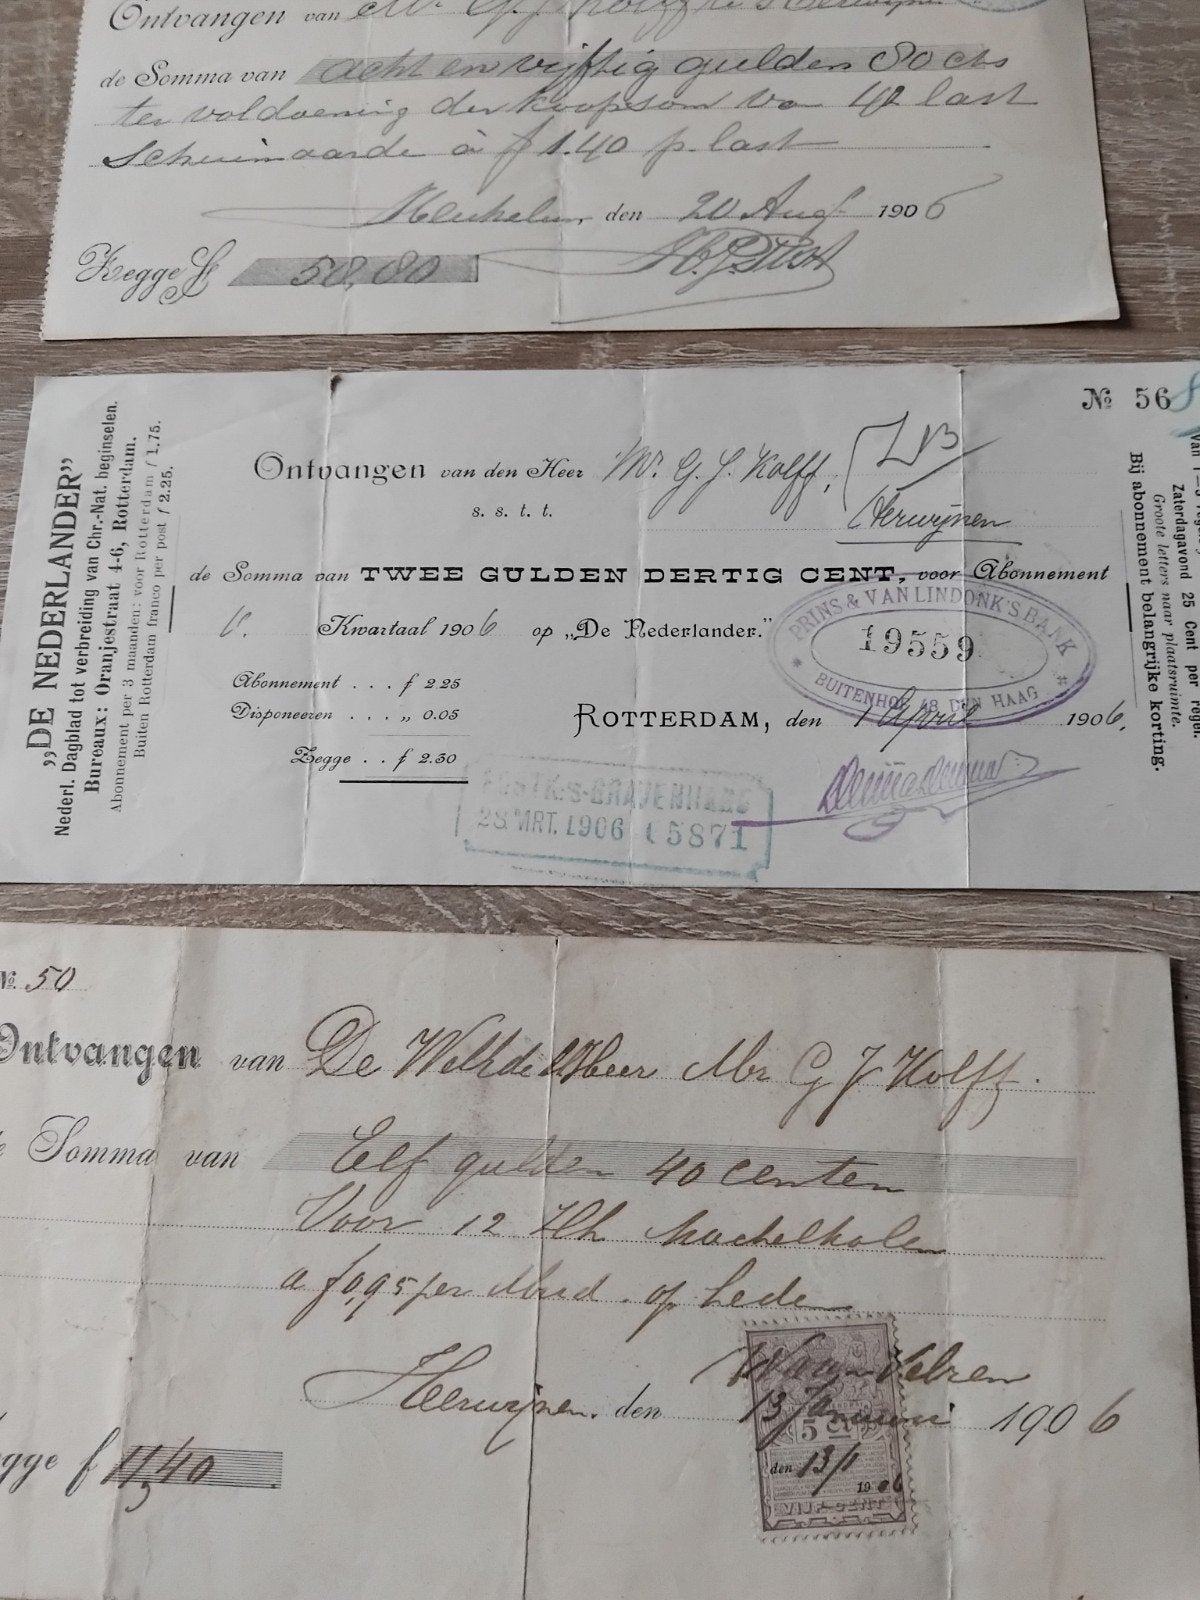 Ontvangen van Mr. G. J. Kolff te Herwijnen
de Somma van acht en vijftig gulden 80 cts
ter voldoening der koopsom van 42 last
Schuimaarde à f 1.40 p. last
Heukelum, den 20 Aug 1906
Zegge f 58,80
„DE NEDERLANDER”
Nederl. Dagblad tot verbreiding van Chr.-Nat. beginselen.
Bureaux: Oranjestraat 4-6, Rotterdam.
Abonnement per 3 maanden: voor Rotterdam f 1.75.
Buiten Rotterdam franco per post f 2.25.
№ 568
Ontvangen van den Heer Mr. G. J. Kolff,
s. s. t. t.
Herwijnen
de Somma van TWEE GULDEN DERTIG CENT, voor Abonnement
Kwartaal 1906 op „De Nederlander.”
Abonnement . . . f 2.25
Disponeeren . . . „ 0.05
Zegge . . f 2.30
ROTTERDAM, den 1 April 1906.
PRINS & VAN LINDONK'S BANK
19559
BUITENHOF 48 DEN HAAG
POSTK: S-GRAVENHAGE
28 MRT. 1906 15871
Zaterdagavond 25 Cent per regel.
Groote letters naar plaatsruimte.
Bij abonnement belangrijke korting.
№. 50
Ontvangen van De WelEdele Heer Mr G J Kolff.
de Somma van Elf gulden 40 centen
Voor 12 Hh Machelkolen
a f 0,95 per Mud. op Lede
W van Velzen
Herwijnen, den 13 Januari 1906
Zegge f 11,40
5 Ct
den 13/1 1906
VIJF CENT